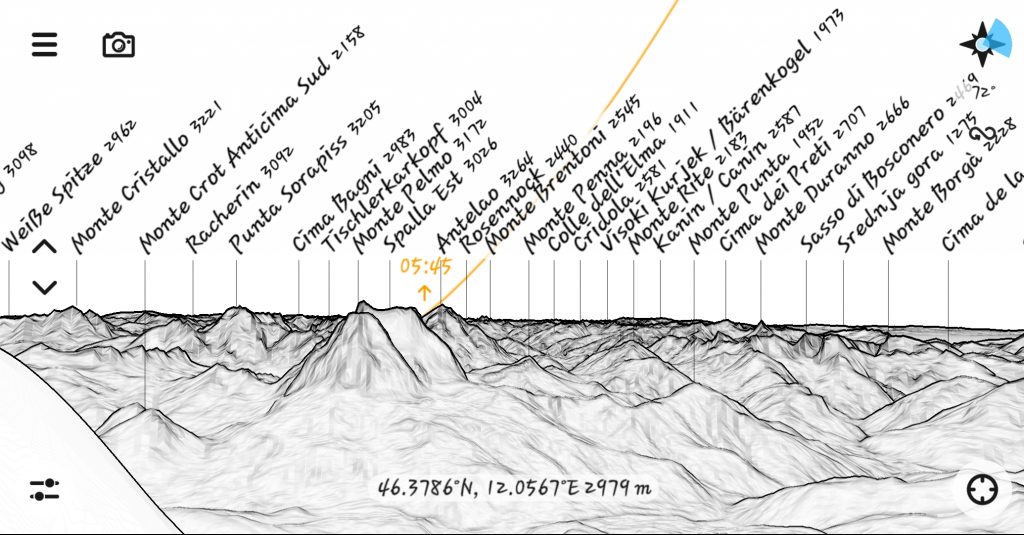 3098
Weiße Spitze 2962
Monte Cristallo 3221
Monte Crot Anticima Sud 2158
Racherin 3092
Punta Sorapiss 3205
Cima Bagni 2983
Tischlerkarkopf 3004
Monte Pelmo 3172
Spalla Est 3026
Antelao 3264
Rosennock 2440
Monte Brentoni 2545
Monte Penna 2196
Colle dell'Elma 1911
Cridola 2581
Visoki Kurjek / Bärenkogel 1973
Monte Rite 2183
Kanin / Canin 2587
Monte Punta 1952
Cima dei Preti 2707
Monte Duranno 2666
Sasso di Bosconero 2469
Srednja gora 1275
Monte Borgà 2228
Cima de la
72°
05:45
46.3786°N, 12.0567°E 2979 m